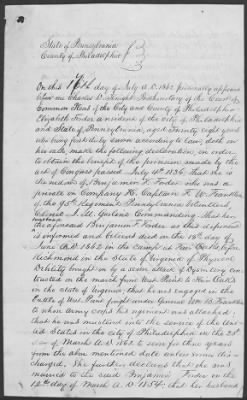 State of Pennsylvania
County of Philadelphia
On this 17th day of July A.D. 1862 personally appeared
before me Charles D. Knight Prothonotary of the Court of
Common Pleas of the City and County of Philadelphia
Elizabeth Foster a resident of the city of Philadelphia
and State of Pennsylvania, aged Twenty eight years
who being first duly sworn according to law, doth on
her oath, make the following declaration, in order
to obtain the benefit of the provision made by the
act of Congress passed July 4th 1836 that she is
the widow of Benjamin F. Foster who was a
private in Company K, Captain
of the 95th Regiment Pennsylvania Volunteers
Colonel J. M. Gosline Commanding That her
husband
the aforesaid Benjamin F Foster as this deponent
is informed and believes died on the 19th day of
June A.D. 1862 in the Camp at Fair Oaks before
Richmond in the State of Virginia of Physical
Debility brought on by a severe attack of Dysentery con
tracted in the march from West Point to Fair Oaks
in the state of Virginia, that he was engaged in the
Battle of West Point fought under General Wm B. Franklin
to whose Army Corps his regiment was attached,
that he was mustered into the service of the Uni
ted States in the city of Philadelphia in the
of March A.D. 1862 to serve for three years
from the above mentioned date unless sooner dis=
charged. She further declares that she was
married to the said Benjamin Foster on the
12th day of March A.D. 1854; that her husband